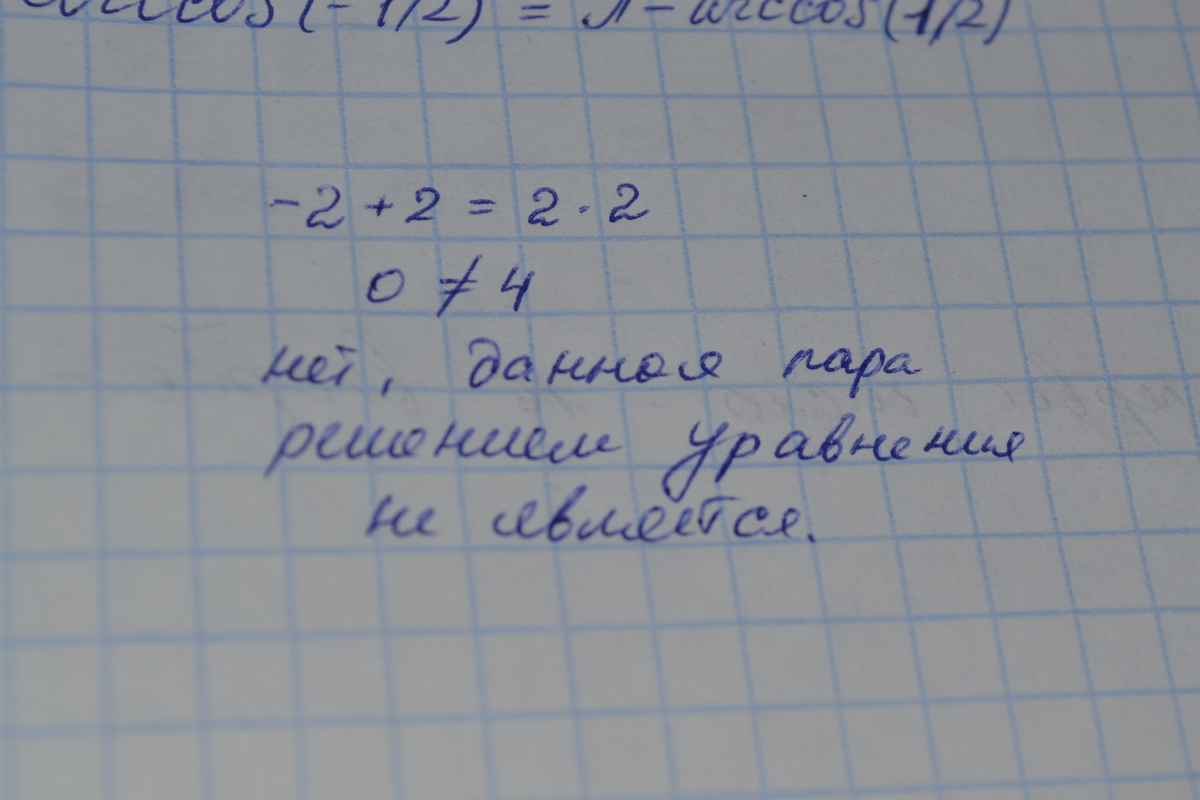 arccos(-1/2) = π - arccos(1/2)
-2 + 2 = 2 · 2
0 ≠ 4
нет, данная пара
решением уравнения
не является.